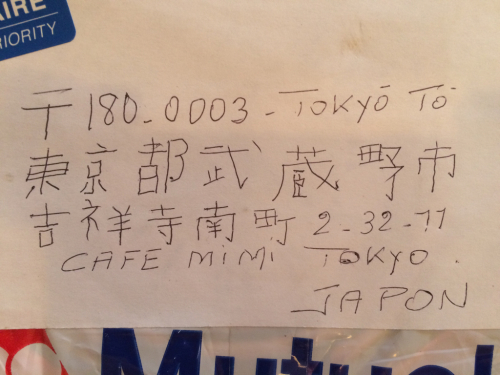 AIRE
PRIORITY
〒180-0003-TOKYŌ TŌ
東京都武蔵野市
吉祥寺南町 2-32-11
CAFE MIMI TOKYO.
JAPON
Mutuel